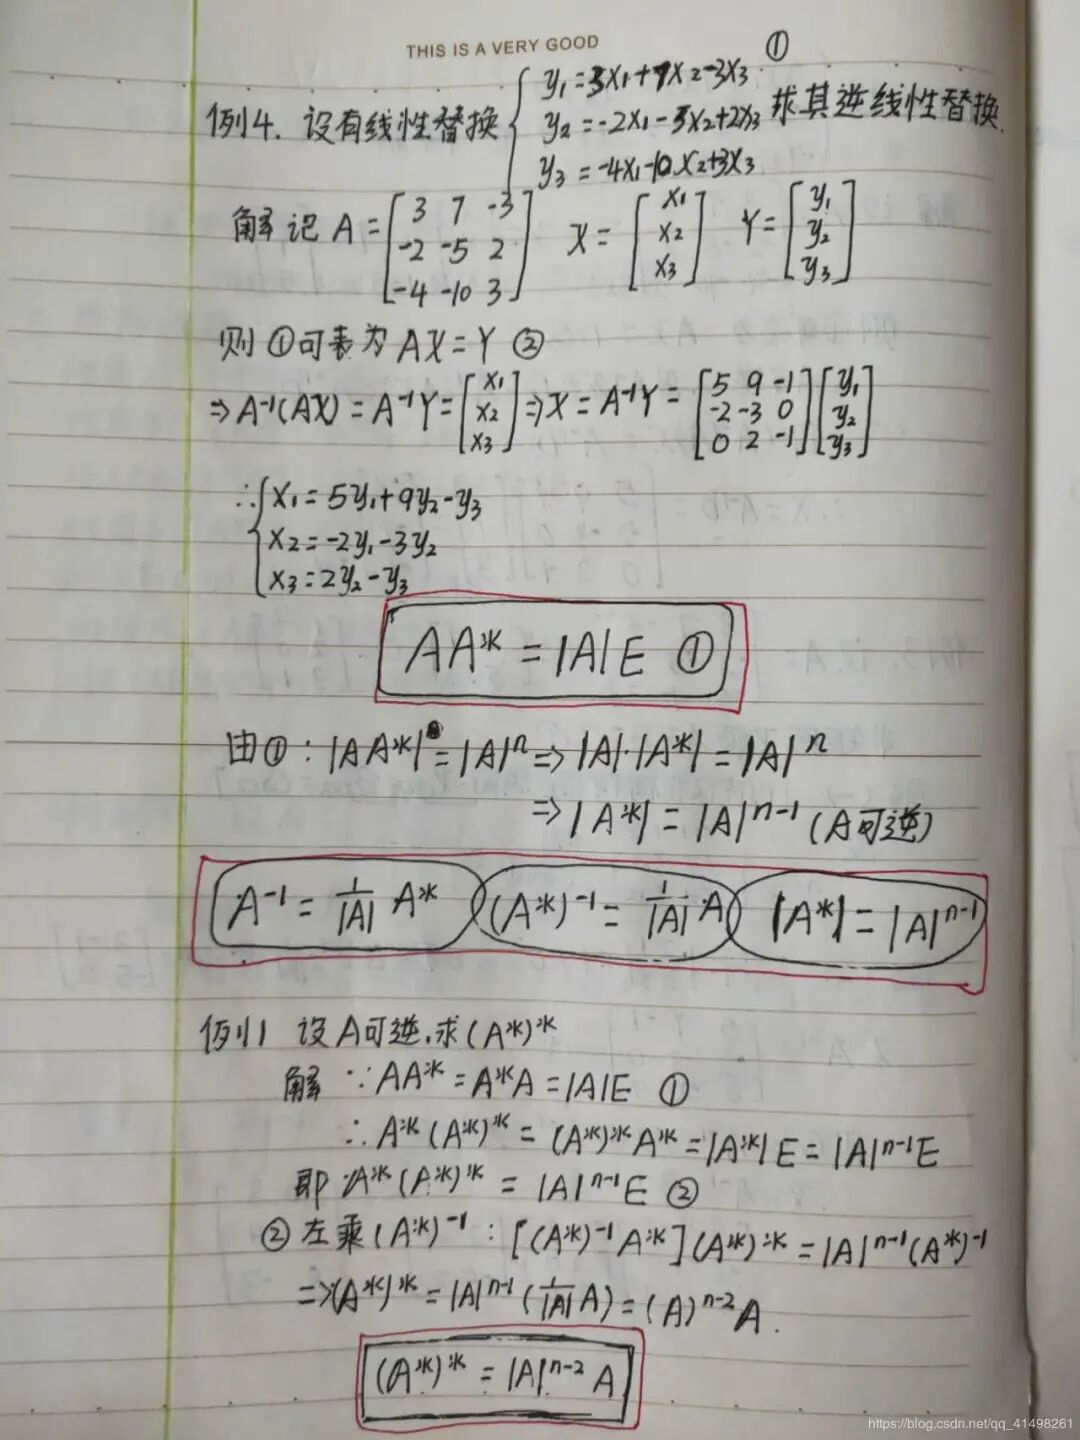 THIS IS A VERY GOOD
例4. 设有线性替换 { y₁=3x₁+7x₂-3x₃ ① 求其逆线性替换.
y₂=-2x₁-5x₂+2x₃
y₃=-4x₁-10x₂+3x₃
解 记 A=[3 7 -3; -2 -5 2; -4 -10 3] X=[x₁; x₂; x₃] Y=[y₁; y₂; y₃]
则 ①可表为 AX=Y ②
⇒A⁻¹(AX)=A⁻¹Y=[x₁; x₂; x₃]⇒X=A⁻¹Y=[5 9 -1; -2 -3 0; 0 2 -1][y₁; y₂; y₃]
∴{ x₁=5y₁+9y₂-y₃
x₂=-2y₁-3y₂
x₃=2y₂-y₃
AA*=|A|E ①
由①:|AA*|=|A|ⁿ⇒|A|·|A*|=|A|ⁿ
⇒|A*|=|A|ⁿ⁻¹(A可逆)
A⁻¹=1/|A| A* (A*)⁻¹=1/|A| A |A*|=|A|ⁿ⁻¹
例1 设A可逆,求(A*)*
解 ∵AA*=A*A=|A|E ①
∴A*(A*)*=(A*)*A*=|A*|E=|A|ⁿ⁻¹E
即 A*(A*)*=|A|ⁿ⁻¹E ②
②左乘(A*)⁻¹:[(A*)⁻¹A*](A*)*=|A|ⁿ⁻¹(A*)⁻¹
⇒(A*)*=|A|ⁿ⁻¹(1/|A| A)=(A)ⁿ⁻²A.
(A*)*=|A|ⁿ⁻²A
https://blog.csdn.net/qq_41498261